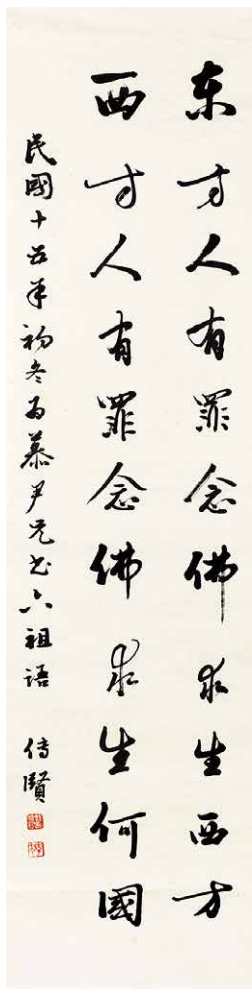 东方人有罪念佛求生西方
西方人有罪念佛求生何國
民國十五年初冬为慕尹兄书六祖语 傳賢